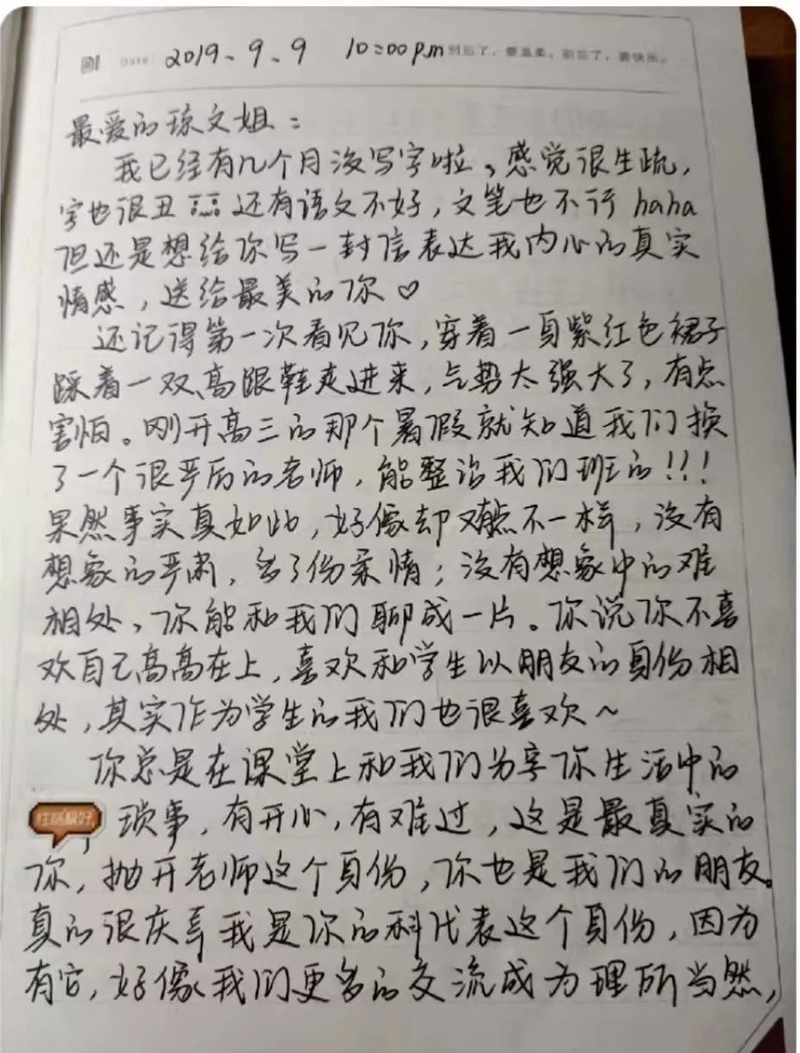 Date: 2019.9.9 10:00pm 别忘了，要温柔，别忘了，要快乐。
最爱的琼文姐：
我已经有几个月没写字啦，感觉很生疏，
字也很丑 还有语文不好，文笔也不行 haha
但还是想给你写一封信表达我内心的真实
情感，送给最美的你♡
还记得第一次看见你，穿着一身紫红色裙子
踩着一双高跟鞋走进来，气势太强大了，有点
害怕。刚开高三的那个暑假就知道我们换
了一个很严厉的老师，能整治我们班的！！！
果然事实真如此，好像却又有点不一样，没有
想象的严肃，多了份柔情；没有想象中的难
相处，你能和我们聊成一片。你说你不喜
欢自己高高在上，喜欢和学生以朋友的身份相
处，其实作为学生的我们也很喜欢～
你总是在课堂上和我们分享你生活中的
琐事，有开心，有难过，这是最真实的
你，抛开老师这个身份，你也是我们的朋友。
真的很庆幸我是你的科代表这个身份，因为
有它，好像我们更多的交流成为理所当然，